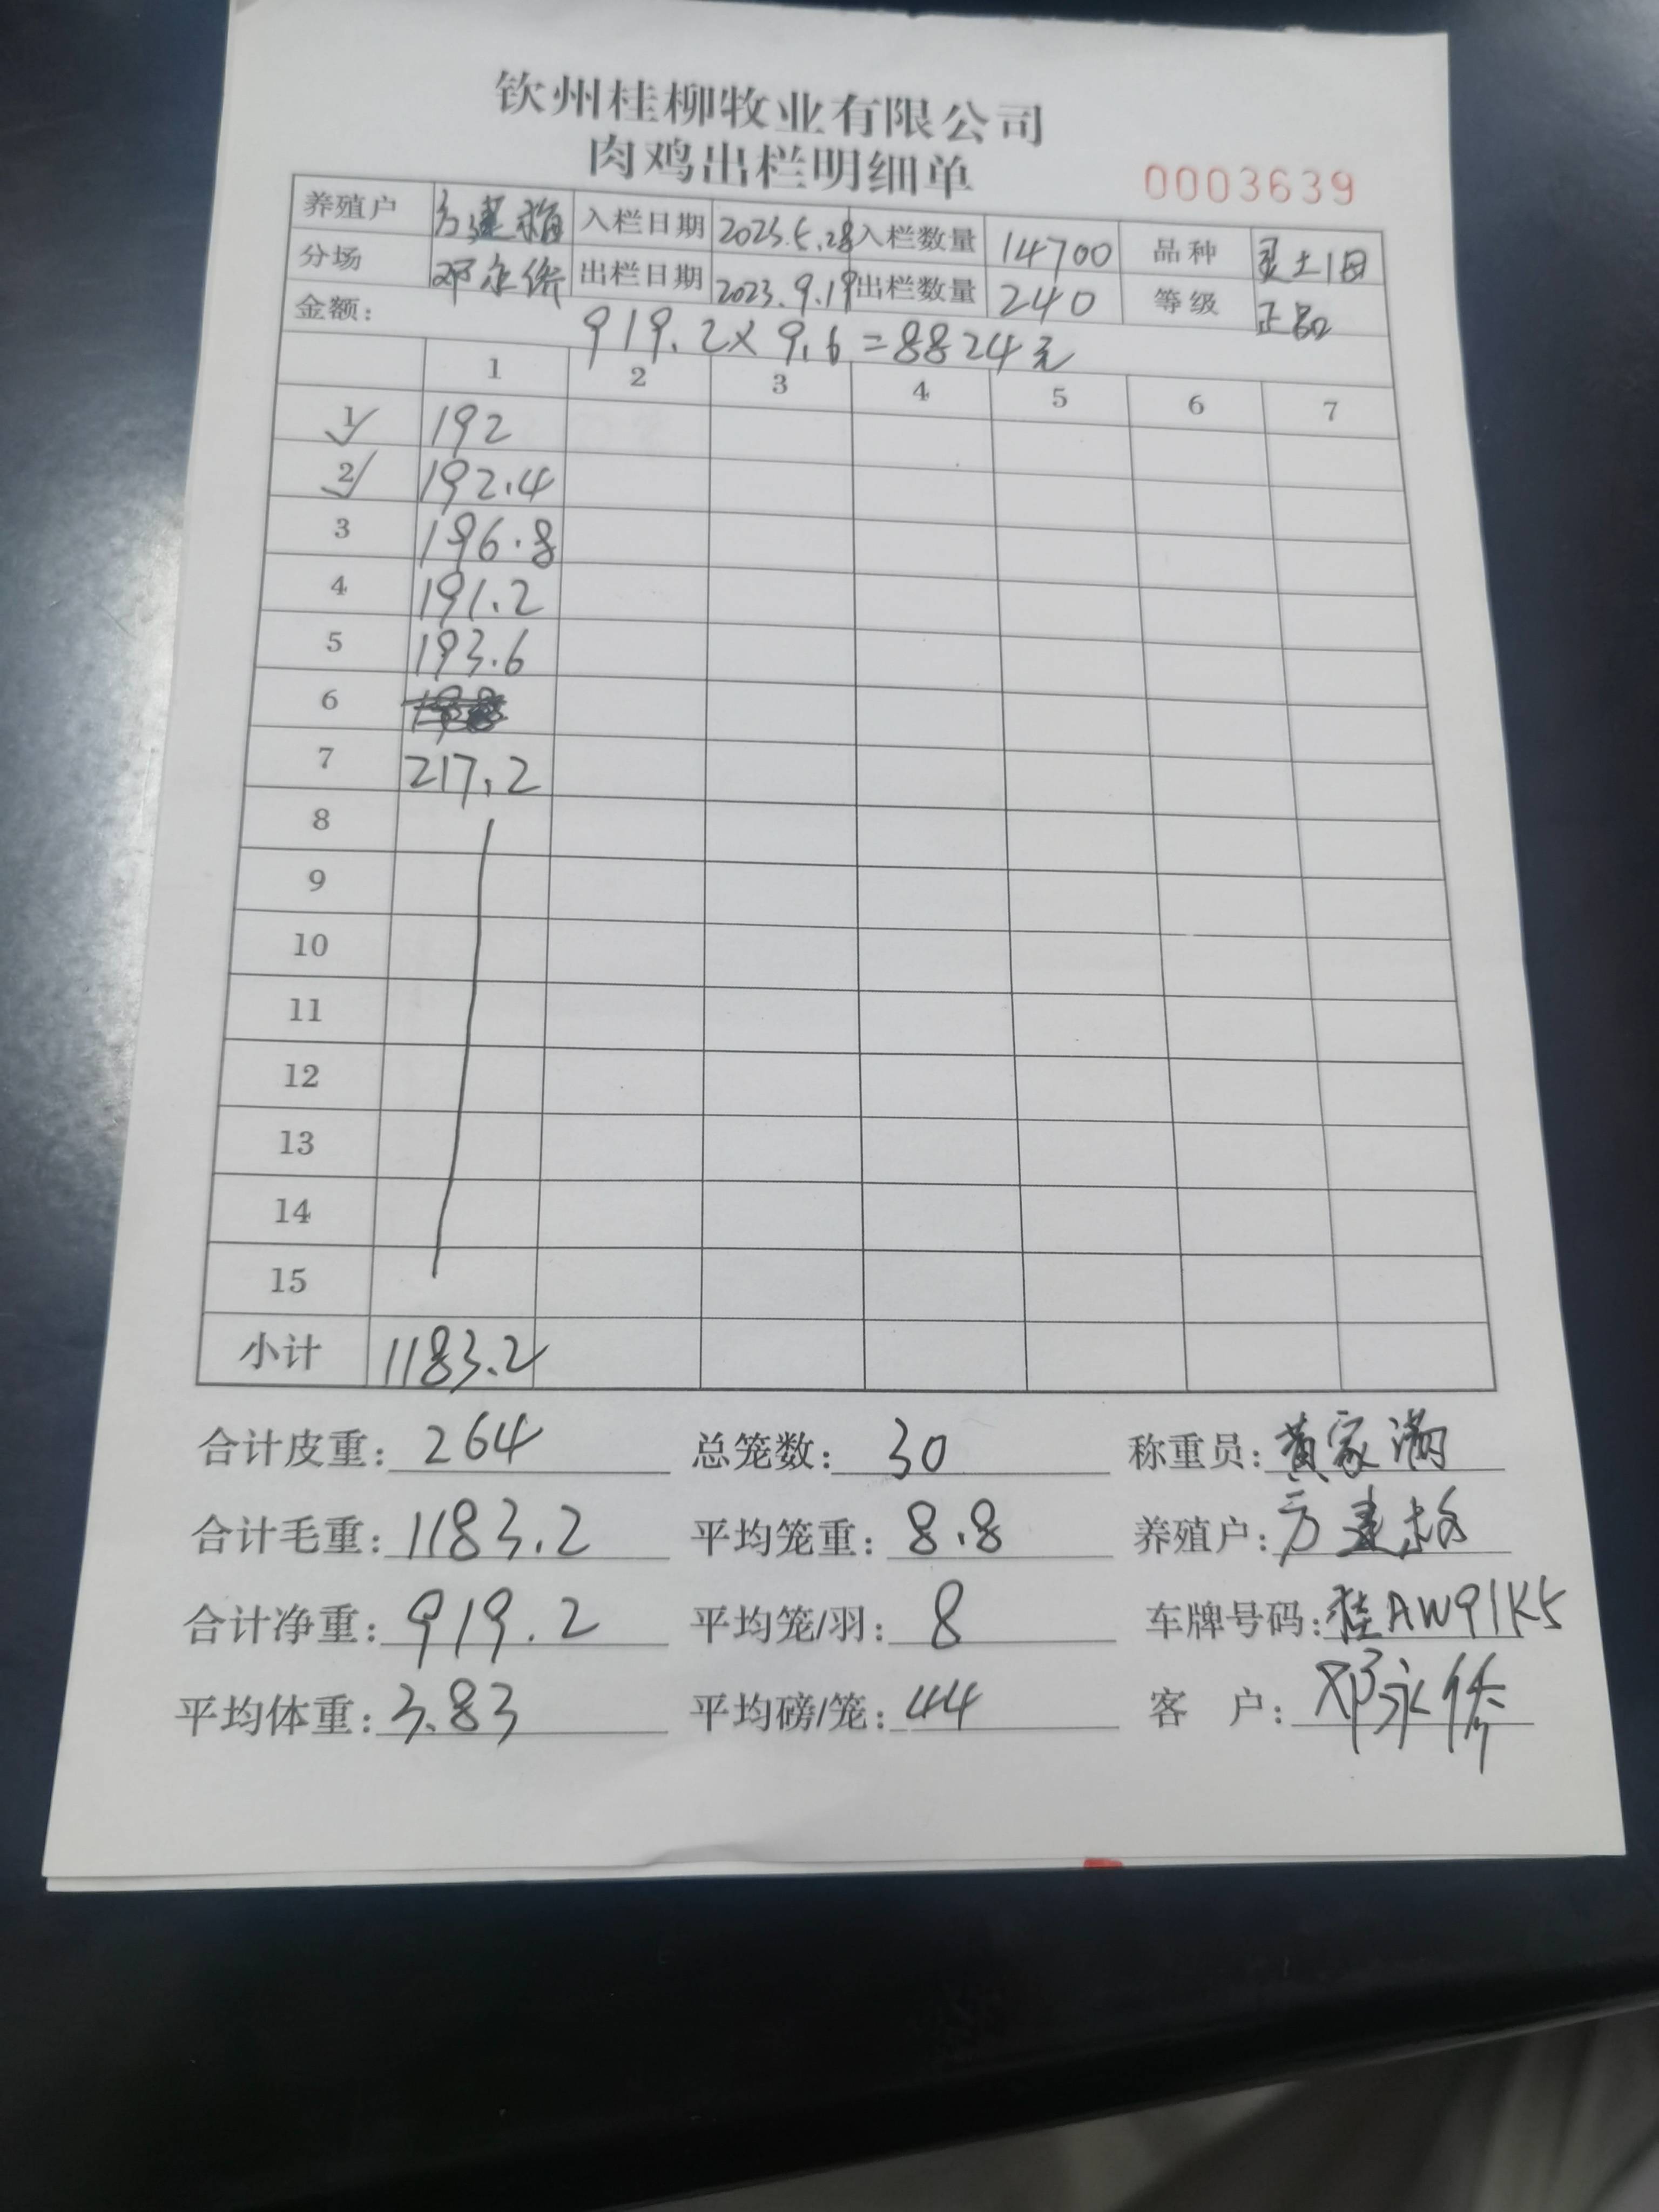 钦州桂柳牧业有限公司
肉鸡出栏明细单
0003639
养殖户 方建梅 入栏日期 2023.5.28 入栏数量 14700 品种 灵土1日
分场 邓永侨 出栏日期 2023.9.19 出栏数量 240 等级 正品
金额： 919.2×9.6=8824元
1 2 3 4 5 6 7
1 192
2 192.4
3 196.8
4 191.2
5 193.6
6
7 217.2
8
9
10
11
12
13
14
15
小计 1183.2
合计皮重：264 总笼数：30 称重员：黄家满
合计毛重：1183.2 平均笼重：8.8 养殖户：方建梅
合计净重：919.2 平均笼/羽：8 车牌号码：桂AW91K5
平均体重：3.83 平均磅/笼：44 客 户：邓永侨